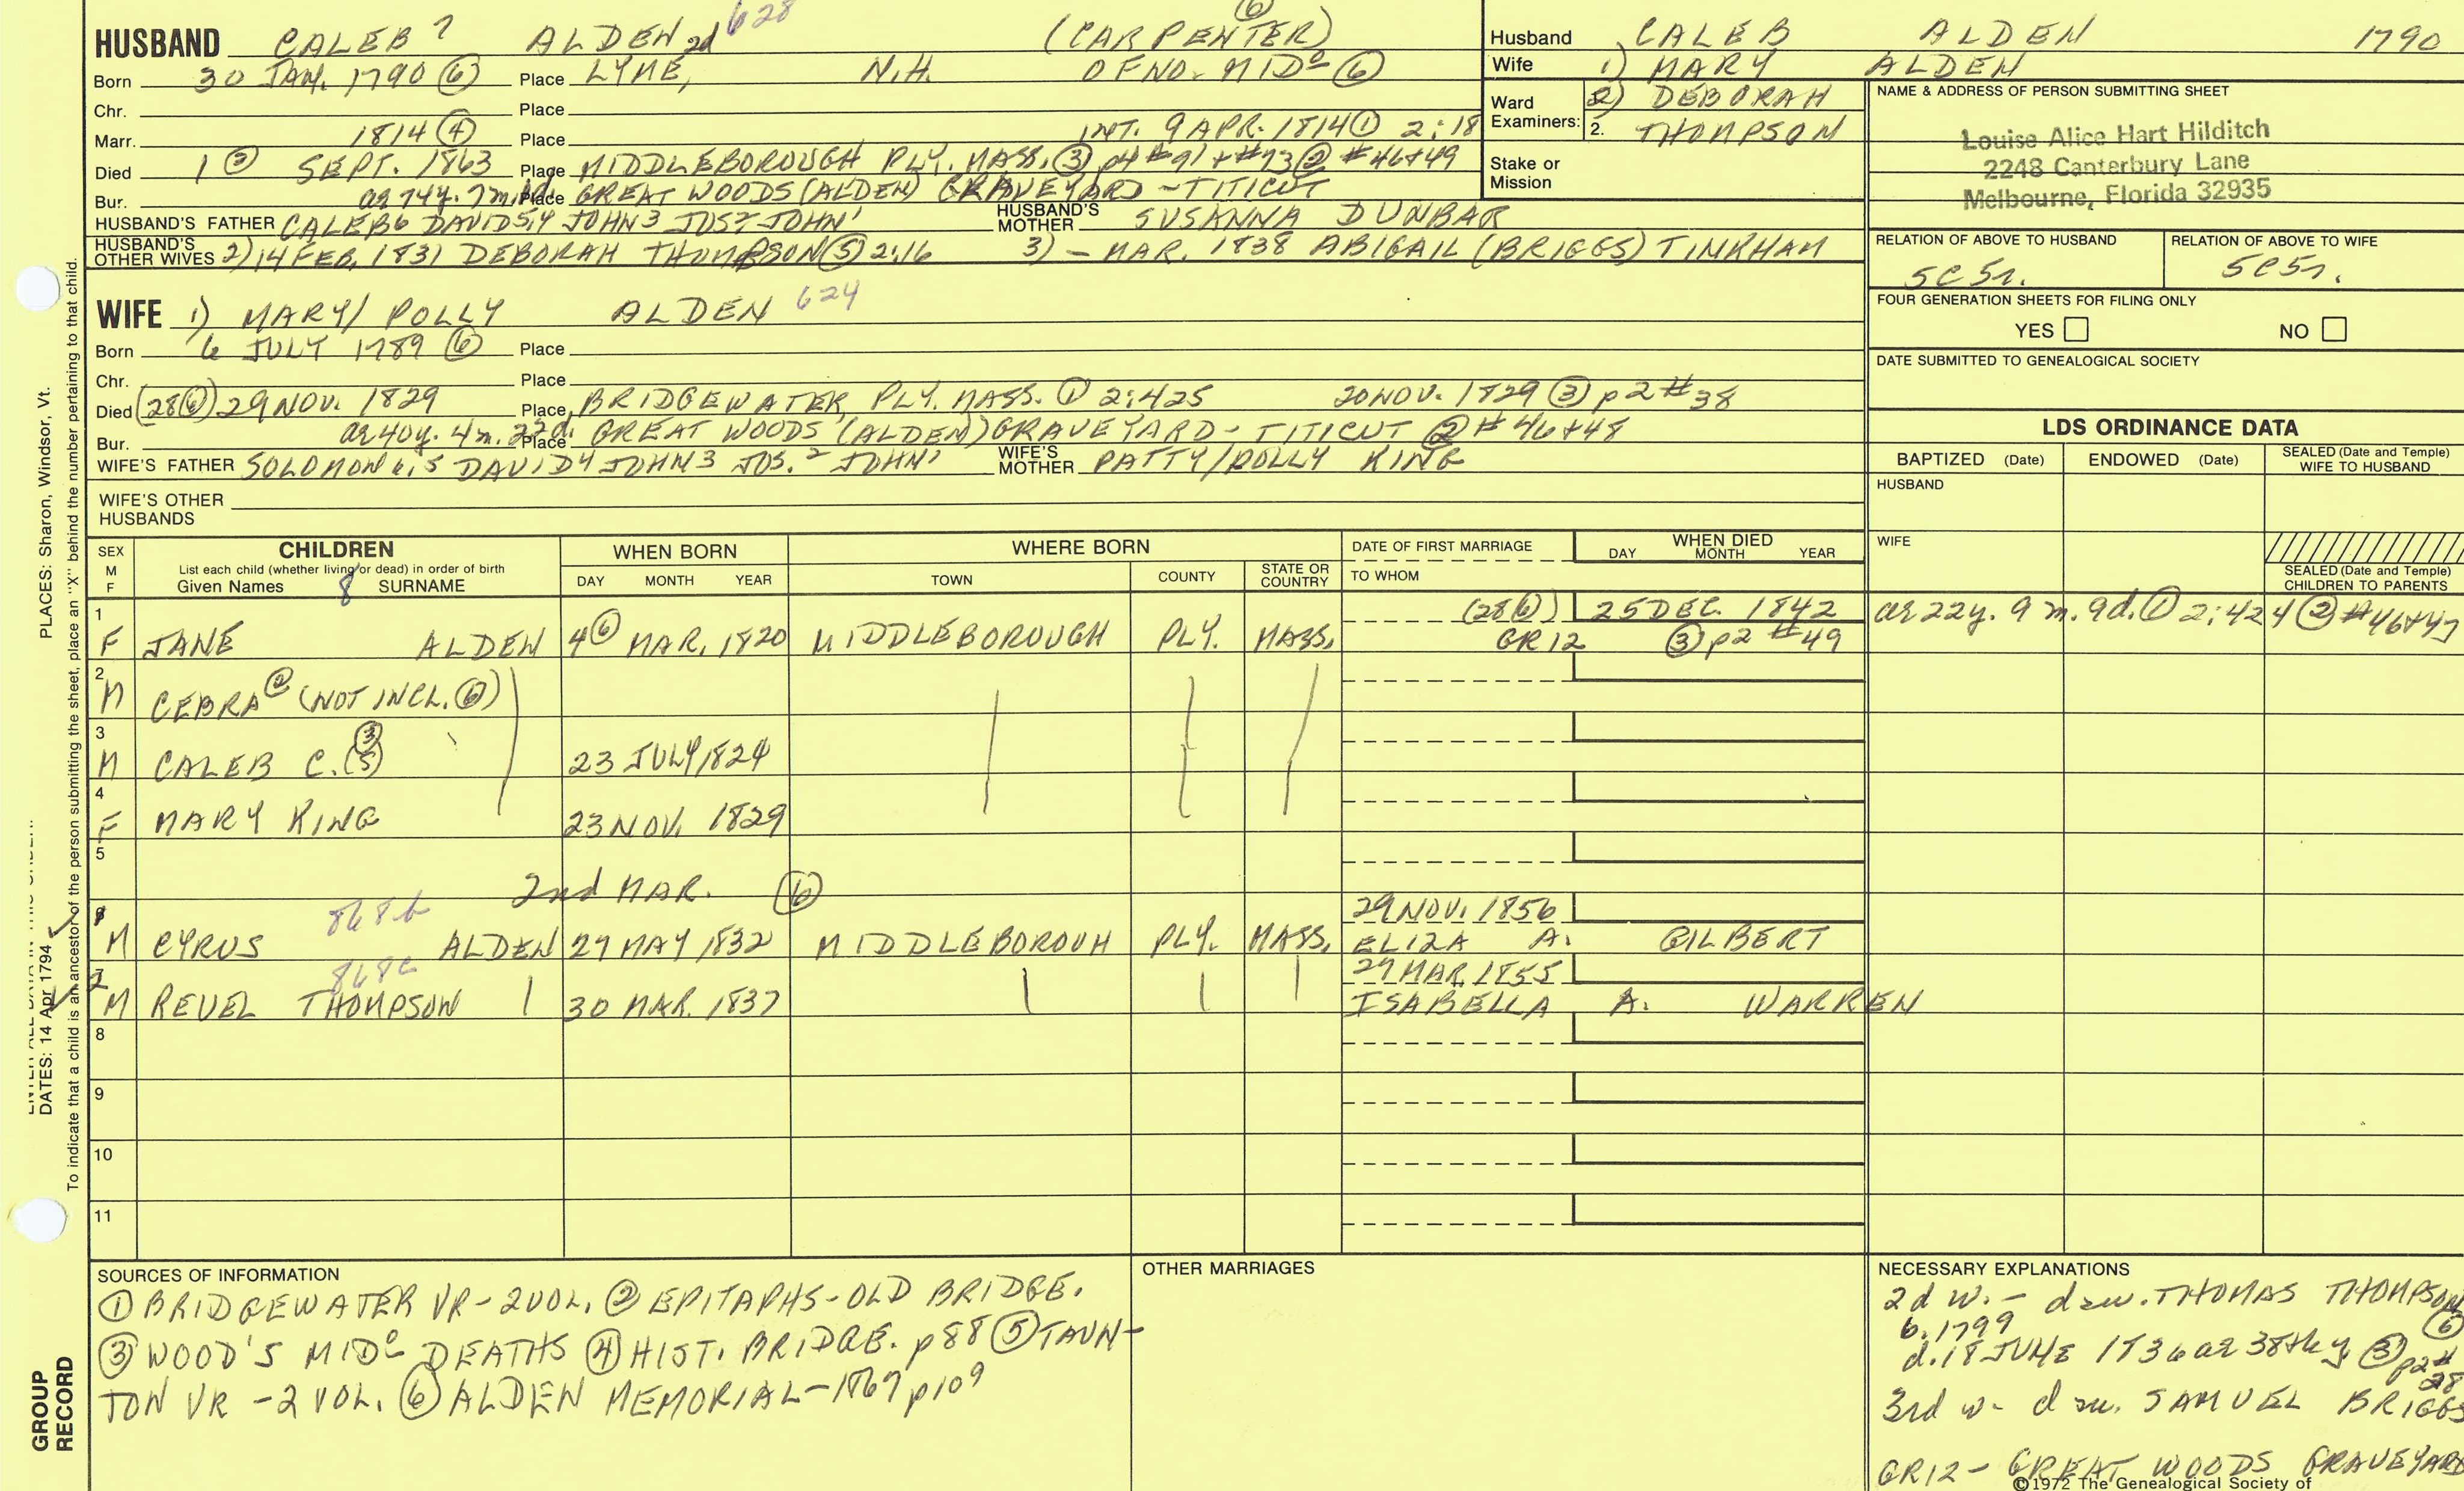 HUSBAND CALEB 7 ALDEN 2d 628 (CARPENTER) ⑥
Born 30 JAN. 1790 ⑥ Place LYME, N.H. OF NO. MIDᴼ ⑥
Chr. Place
Marr. 1814 ④ Place INT. 9 APR. 1814 ① 2:18
Died 1 ② SEPT. 1863 Place MIDDLEBOROUGH PLY. MASS. ③ p4 #91 + #73 ② #46+49
Bur. ae 74y. 7m. Place GREAT WOODS (ALDEN) GRAVEYARD - TITICUT
HUSBAND'S FATHER CALEB6 DAVID5,4 JOHN3 JOS2 JOHN1 HUSBAND'S MOTHER SUSANNA DUNBAR
HUSBAND'S OTHER WIVES 2) 14 FEB. 1831 DEBORAH THOMPSON ⑤ 2:16 3) - MAR. 1838 ABIGAIL (BRIGGS) TINKHAM
Husband CALEB ALDEN 1790
Wife 1) MARY ALDEN
Ward Examiners: 2) DEBORAH
2. THOMPSON
Stake or Mission
NAME & ADDRESS OF PERSON SUBMITTING SHEET
Louise Alice Hart Hilditch
2248 Canterbury Lane
Melbourne, Florida 32935
RELATION OF ABOVE TO HUSBAND RELATION OF ABOVE TO WIFE
5C5r. 5C5r.
FOUR GENERATION SHEETS FOR FILING ONLY
YES NO
DATE SUBMITTED TO GENEALOGICAL SOCIETY
WIFE 1) MARY/ POLLY ALDEN 624
Born 6 JULY 1789 ⑥ Place
Chr. Place
Died (28⑥) 29 NOV. 1829 Place BRIDGEWATER PLY. MASS. ① 2:425 20 NOV. 1829 ③ p2 #38
Bur. ae 40y. 4m. 22d. Place GREAT WOODS (ALDEN) GRAVEYARD - TITICUT ② #46+48
WIFE'S FATHER SOLOMON6,5 DAVID4 JOHN3 JOS.2 JOHN1 WIFE'S MOTHER PATTY/POLLY KING
WIFE'S OTHER HUSBANDS
LDS ORDINANCE DATA
BAPTIZED (Date) ENDOWED (Date) SEALED (Date and Temple) WIFE TO HUSBAND
HUSBAND
WIFE
SEALED (Date and Temple) CHILDREN TO PARENTS
SEX M F CHILDREN WHEN BORN WHERE BORN DATE OF FIRST MARRIAGE WHEN DIED
List each child (whether living or dead) in order of birth
Given Names 8 SURNAME DAY MONTH YEAR TOWN COUNTY STATE OR COUNTRY TO WHOM DAY MONTH YEAR
1 (28⑥) 25 DEC. 1842 ae 22y. 9m. 9d. ① 2:424 ② #46+47
F JANE ALDEN 4⑥ MAR. 1820 MIDDLEBOROUGH PLY. MASS. GR12 ③ p2 #49
2
M CEBRA ② (NOT INCL. ⑥)
3
M CALEB C. ③ (5) 23 JULY 1824
4
F MARY KING 23 NOV. 1829
5
2nd MAR. ⑥
868b 29 NOV. 1856
M CYRUS ALDEN 27 MAY 1832 MIDDLEBOROUH PLY. MASS. ELIZA A. GILBERT
868c 27 MAR. 1855
M REUEL THOMPSON 30 MAR. 1837 ISABELLA A. WARREN
8
9
10
11
SOURCES OF INFORMATION
① BRIDGEWATER VR - 2 VOL. ② EPITAPHS - OLD BRIDGE.
③ WOOD'S MIDᴼ DEATHS ④ HIST. BRIDGE. p88 ⑤ TAUN-
TON VR - 2 VOL. ⑥ ALDEN MEMORIAL - 1867 p109
OTHER MARRIAGES
NECESSARY EXPLANATIONS
2d w. - d. THOMAS THOMPSON
b. 1799 ⑥
d. 18 JUNE 1836 ae 38th y ③ p2 # 28
3rd w - SAMUEL BRIGGS
GR12 - GREAT WOODS GRAVEYARD
©1972 The Genealogical Society of
PLACES: Sharon, Windsor, Vt.
DATES: 14 Apr 1794
To indicate that a child is an ancestor of the person submitting the sheet, place an "X" behind the number pertaining to that child.
GROUP RECORD